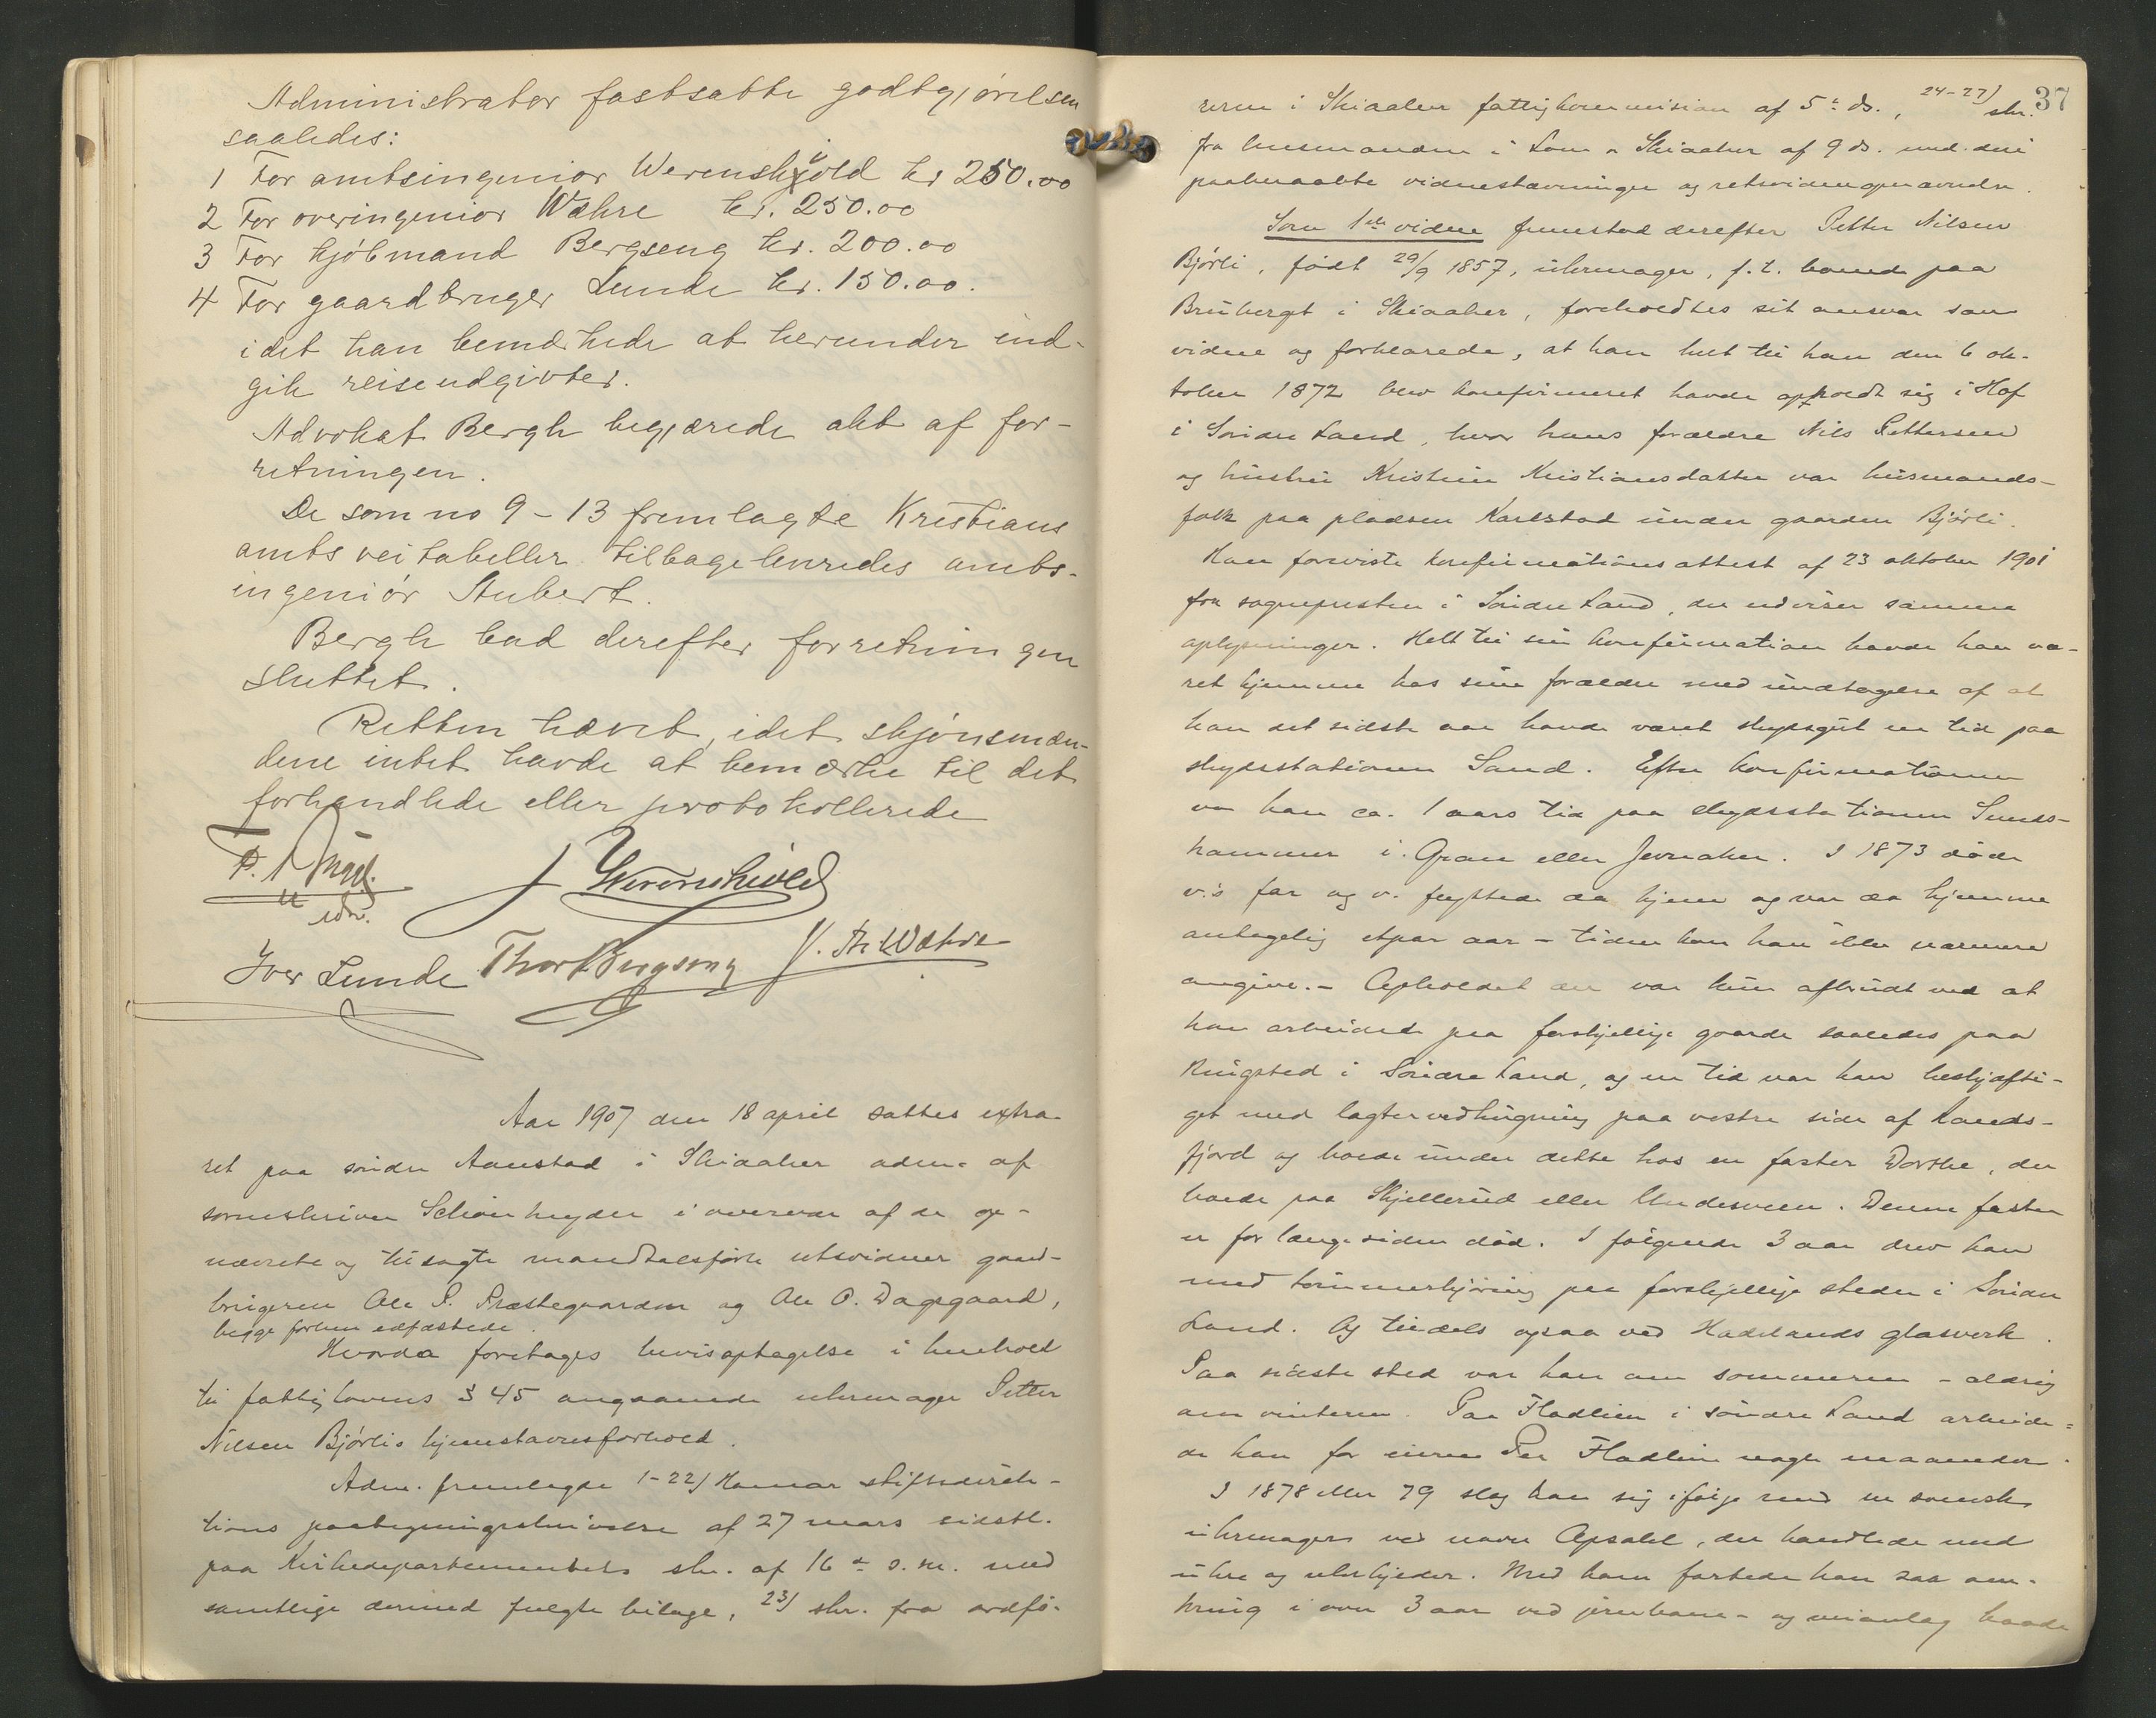 Administrator fastsatte godtgjørelsen
saaledes:
1 For amtsingeniør Werenskiold kr 250.00
2 For overingeniør Wæhre kr. 250.00
3 For kjøbmand Bergseng kr. 200.00
4 For gaardbruger Lunde kr. 150.00.
idet han bemærkede at herunder ind-
gik reiseudgivter.
Advokat Bergh begjærede akt af for-
retningen.
De som no 9-13 fremlagte Kristians
amts veitabeller tilbageleveredes amts-
ingeniør Aubert.
Bergh bad derefter forretningen
sluttet.
Retten hævet, idet skjønsmæn-
dene intet havde at bemærke til det
forhandlede eller protokollerede
Werenskiold
Iver Lunde Thor Bergseng Wæhre
Aar 1907 den 18 april sattes extra-
ret paa søndre Aanstad i Skiaaker adm. af
sorenskriver Schiøn i overvær af de op-
nævnte og tilsagte mandtalsførte retsvidner gaard-
brugerne Ole P. Præstegaarden og Ole O. Dagsgaard,
begge forhen edfæstede.
Hvorda foretages bevisoptagelse i henhold
til fattiglovens § 45 angaaende uhrmager Petter
Nilsen Bjørlis hjemstavnsforhold.
Adm. fremlagde 1-22/ Hamar stiftsdirek-
tions paategningsskrivelse af 27 mars sidstl.
paa Kirkedepartementets skr. af 16 s. m. med
samtlige dermed fulgte bilage, 23/ skr. fra ordfø-
37
reren i Skiaaker fattigkommision af 5te ds., 24-27/ skr.
fra lensmanden i Lom o Skiaaker af 9 ds. med deri
paaberaabte vidnestævninger og retsvidneopnævnelse.
Som 1ste vidne fremstod derefter Petter Nilsen
Bjørli, født 29/9 1857, uhrmager, f. t. boende paa
Bruberget i Skiaaker, foreholdtes sit ansvar som
vidne og forklarede, at han helt til han den 6 ok-
tober 1872 blev konfirmeret havde opholdt sig i Hof
i Søndre Land, hvor hans forældre Nils Pettersen
og hustru Kristine Kristiansdatter var husmands-
folk paa pladsen Karlstad under gaarden Bjørli.
Han foreviste konfirmationsattest af 23 oktober 1901
fra sognepresten i Søndre Land, der udviser samme
oplysninger. Helt til sin konfirmation havde han væ-
ret hjemme hos sine forældre med undtagelse af at
han det sidste aar havde været skydsgut en tid paa
skydsstationen Sand. Efter konfirmationen
var han ca. 1 aars tid paa skydsstationen Sunds-
hammer i Gran eller Jevnaker. I 1873 døde
v.s far og v. flyttede da hjem og var da hjemme
antagelig etpar aar - tiden kan han ikke nærmere
angive. - Opholdet der var kun afbrudt ved at
han arbeidede paa forskjellige gaarde saaledes paa
Ringsted i Søndre Land, og en tid var han beskjæfti-
get med lagtervedhugning paa vestre side af Rands-
fjord og boede under dette hos en faster Dorthe, der
boede paa Skjellerud eller Undesveen. Denne faster
er for længe siden død. I følgende 3 aar drev han
med tømmerkjøring paa forskjellige steder i Søndre
Land. Og tildels ogsaa ved Hadelands glasverk.
Paa sidste sted var han om sommeren - aldrig
om vinteren. Paa Fladlien i søndre Land arbeide-
de han for eieren Per Fladlien nogle maaneder.
I 1878 eller 79 slog han sig ifølge med en svensk
uhrmager ved navn Apsahl, der handlede med
uhre og uhrkjeder. Med ham fartede han saa om-
kring i over 3 aar ved jernbane- og veianlæg baade